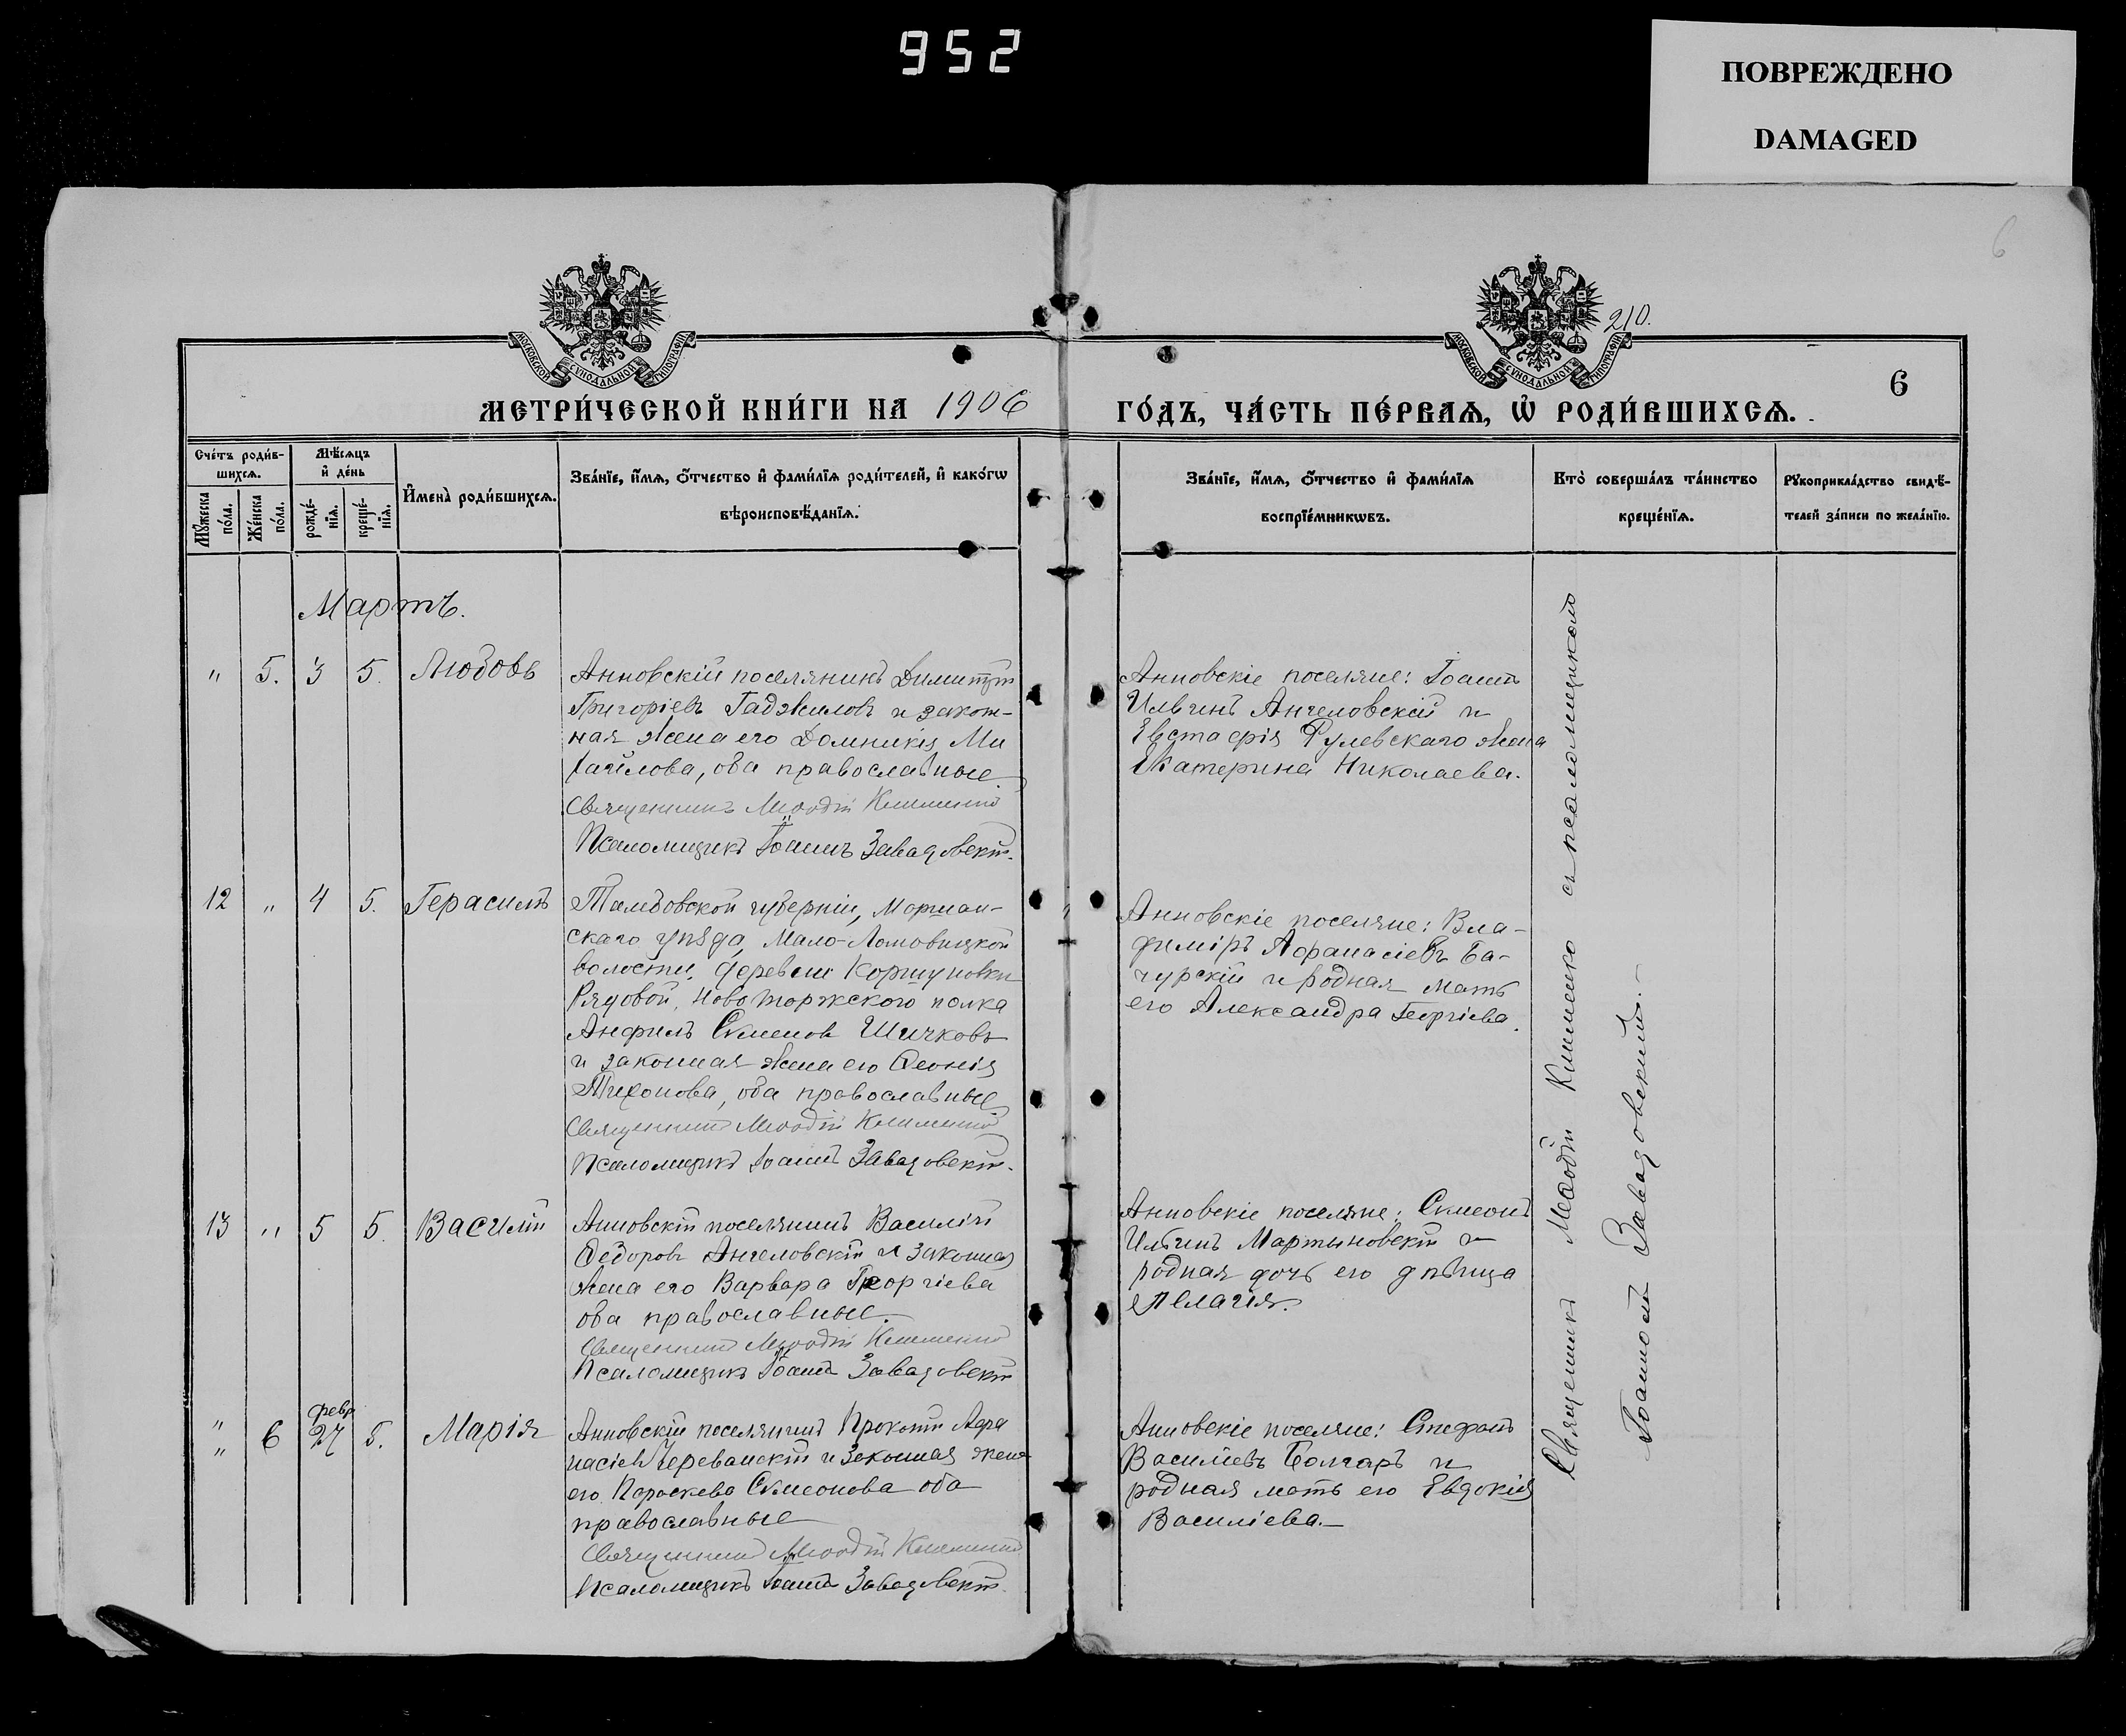 952
ПОВРЕЖДЕНО
DAMAGED
6
210.
МОСКОВСКОЙ СУНОДАЛЬНОЙ ТИПОГРАФІИ
МОСКОВСКОЙ СУНОДАЛЬНОЙ ТИПОГРАФІИ
6
МЕТРИ́ЧЕСКОЙ КНИ́ГИ НА 1906 ГО́ДЪ, ЧА́СТЬ ПЕ́РВАѦ, Ѡ҆ РОДИ́ВШИХСѦ.
Сче́тъ роди́в-
шихсѧ.
Мꙋ́жеска
по́ла.
Же́нска
по́ла.
Мѣ́сѧцъ
и҆ де́нь
рожде́-
нїѧ.
креще́-
нїѧ.
И҆мена̀ роди́вшихсѧ.
Зва́нїе, и҆́мѧ, ѻ҆́тчество и҆ фами́лїѧ роди́телей, и҆ како́гѡ
вѣроисповѣ́данїѧ.
Зва́нїе, и҆́мѧ, ѻ҆́тчество и҆ фами́лїѧ
воспрїе́мникѡвъ.
Кто̀ соверша́лъ та́инство
креще́нїѧ.
Рꙋкоприкла́дство свидѣ́-
телей за́писи по жела́нїю.
Мартъ.
" 5. 3 5. Любовь
Анновскій поселянинъ Димитрій
Григоріевъ Гаджиловъ и закон-
ная жена его Домникія Ми
хайлова, оба православные
Священникъ Меѳодій Клименко
Псаломщикъ Іоаннъ Завадовскій.
Анновскіе поселяне: Іоаннъ
Ильинъ Ангеловскій и
Евстафія Рулевскаго жена
Екатерина Николаева.
12 " 4 5. Герасимъ
Тамбовской губерніи, Моршан-
скаго уѣзда, Мало-Ломовицкой
волости, деревни Коршуновки
Рядовой, Новоторжского полка
Анфимъ Симеоновъ Шичковъ
и законная жена его Ѳеонія
Тихонова, оба православные
Священникъ Меѳодій Клименко
Псаломщикъ Іоаннъ Завадовскій.
Анновскіе поселяне: Вла-
димиръ Афанасіевъ Ба-
чурскій и родная мать
его Александра Георгіева.
13 " 5 5. Василій
Анновскій поселянинъ Василій
Ѳедоровъ Ангеловскій и законная
жена его Варвара Георгіева
оба православные.
Священникъ Меѳодій Клименко
Псаломщикъ Іоаннъ Завадовскій
Анновскіе поселяне: Симеонъ
Ильинъ Мартыновскій и
родная дочь его дѣвица
Пелагія.
" 6 февр 27 5. Марія
"
Анновскій поселянинъ Прокопій Афа
насіевъ Череванскій и законная жена
его Параскева Симеонова оба
православные
Священникъ Меѳодій Клименко
Псаломщикъ Іоаннъ Завадовскій.
Анновскіе поселяне: Стефанъ
Василіевъ Болгаръ и
родная мать его Евдокія
Василіева.
Священникъ Меѳодій Клименко съ псаломщикомъ
Іоанномъ Завадовскимъ.